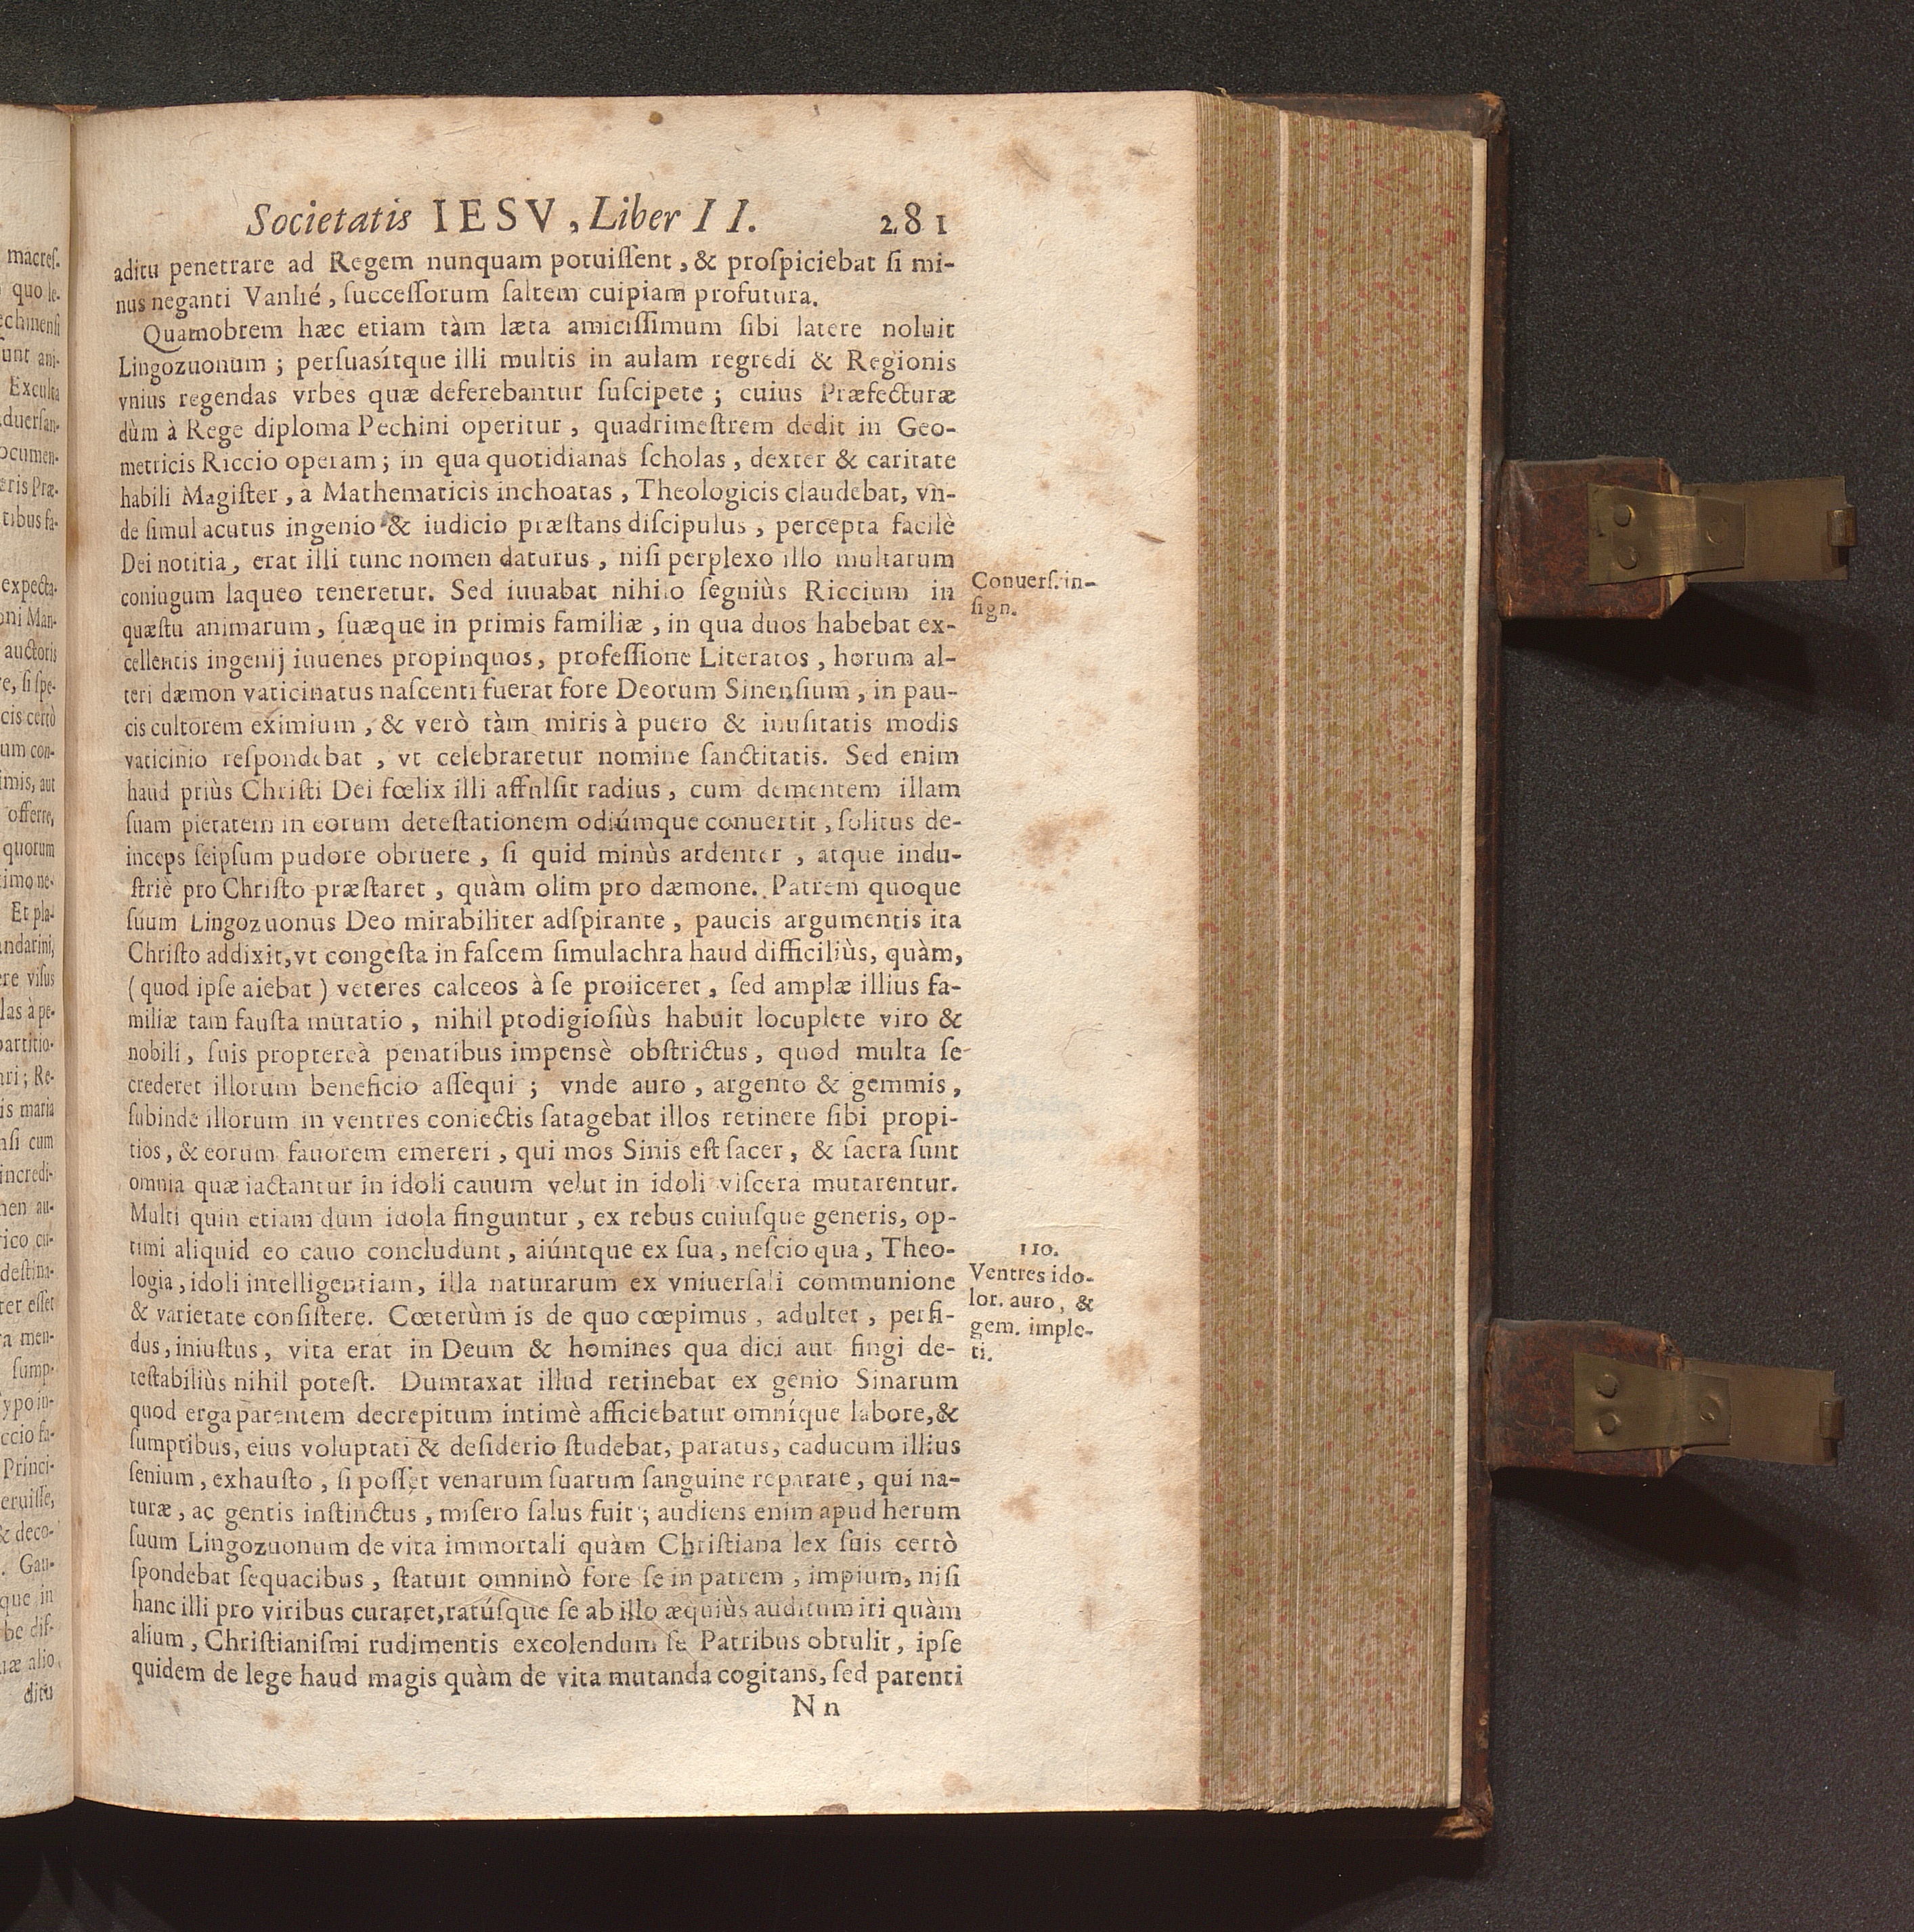 macreſ.
quo le-
echinenſi
unt ani-
Exculta
duerſan-
ocumen-
eris Præ-
tibus fa-
expecta-
oni Man-
auctoris
e, ſi ſpe-
cis certò
um con-
imis, aut
offerre,
quorum
timo ne-
Et pla-
andarini,
ere viſus
las à pe-
partitio-
ri; Re-
is maria
nſi cum
incredi-
men au-
rico cu-
deſtina-
ter eſſet
ra men-
ſump-
Typo in-
ccio fa-
Princi-
eruiſſe,
& deco-
. Gau-
que in
be diſ-
uæ alio
ditu
Societatis IESV, Liber II. 281
aditu penetrare ad Regem nunquam potuiſſent, & proſpiciebat ſi mi-
nus neganti Vanlié, ſucceſſorum ſaltem cuipiam profutura.
Quamobrem hæc etiam tàm læta amiciſſimum ſibi latere noluit
Lingozuonum; perſuaſítque illi multis in aulam regredi & Regionis
vnius regendas vrbes quæ deferebantur ſuſcipete; cuius Præfecturæ
dùm à Rege diploma Pechini operitur, quadrimeſtrem dedit in Geo-
metricis Riccio operam; in qua quotidianas ſcholas, dexter & caritate
habili Magiſter, a Mathematicis inchoatas, Theologicis claudebat, vn-
de ſimul acutus ingenio & iudicio præſtans diſcipulus, percepta facilè
Dei notitia, erat illi tunc nomen daturus, niſi perplexo illo multarum
coniugum laqueo teneretur. Sed iuuabat nihilo ſegniùs Riccium in
quæſtu animarum, ſuæque in primis familiæ, in qua duos habebat ex-
cellentis ingenij iuuenes propinquos, profeſſione Literatos, horum al-
teri dæmon vaticinatus naſcenti fuerat fore Deorum Sinenſium, in pau-
cis cultorem eximium, & verò tàm miris à puero & inuſitatis modis
vaticinio reſpondebat, vt celebraretur nomine ſanctitatis. Sed enim
haud priùs Chriſti Dei fœlix illi affulſit radius, cum dementem illam
ſuam pietatem in eorum deteſtationem odiúmque conuertit, ſolitus de-
inceps ſeipſum pudore obruere, ſi quid minùs ardenter, atque indu-
ſtriè pro Chriſto præſtaret, quàm olim pro dæmone. Patrem quoque
ſuum Lingozuonus Deo mirabiliter adſpirante, paucis argumentis ita
Chriſto addixit, vt congeſta in faſcem ſimulachra haud difficiliùs, quàm,
(quod ipſe aiebat) veteres calceos à ſe proiiceret, ſed amplæ illius fa-
miliæ tam fauſta mutatio, nihil prodigioſiùs habuit locuplete viro &
nobili, ſuis proptereà penatibus impensè obſtrictus, quod multa ſe
crederet illorum beneficio aſſequi; vnde auro, argento & gemmis,
ſubinde illorum in ventres coniectis ſatagebat illos retinere ſibi propi-
tios, & eorum fauorem emereri, qui mos Sinis eſt ſacer, & ſacra ſunt
omnia quæ iactantur in idoli cauum velut in idoli viſcera mutarentur.
Multi quin etiam dum idola finguntur, ex rebus cuiuſque generis, op-
timi aliquid eo cauo concludunt, aiúntque ex ſua, neſcio qua, Theo-
logia, idoli intelligentiam, illa naturarum ex vniuerſali communione
& varietate conſiſtere. Cœterùm is de quo cœpimus, adulter, perfi-
dus, iniuſtus, vita erat in Deum & homines qua dici aut fingi de-
teſtabiliùs nihil poteſt. Dumtaxat illud retinebat ex genio Sinarum
quod erga parentem decrepitum intimè afficiebatur omníque labore, &
ſumptibus, eius voluptati & deſiderio ſtudebat, paratus, caducum illius
ſenium, exhauſto, ſi poſſet venarum ſuarum ſanguine reparare, qui na-
turæ, ac gentis inſtinctus, miſero ſalus fuit; audiens enim apud herum
ſuum Lingozuonum de vita immortali quàm Chriſtiana lex ſuis certò
ſpondebat ſequacibus, ſtatuit omninò fore ſe in patrem, impium, niſi
hanc illi pro viribus curaret, ratúſque ſe ab illo æquiùs auditum iri quàm
alium, Chriſtianiſmi rudimentis excolendum ſe Patribus obtulit, ipſe
quidem de lege haud magis quàm de vita mutanda cogitans, ſed parenti
Nn
Conuerſ. in-
ſign.
110.
Ventres ido-
lor. auro, &
gem. imple-
ti.